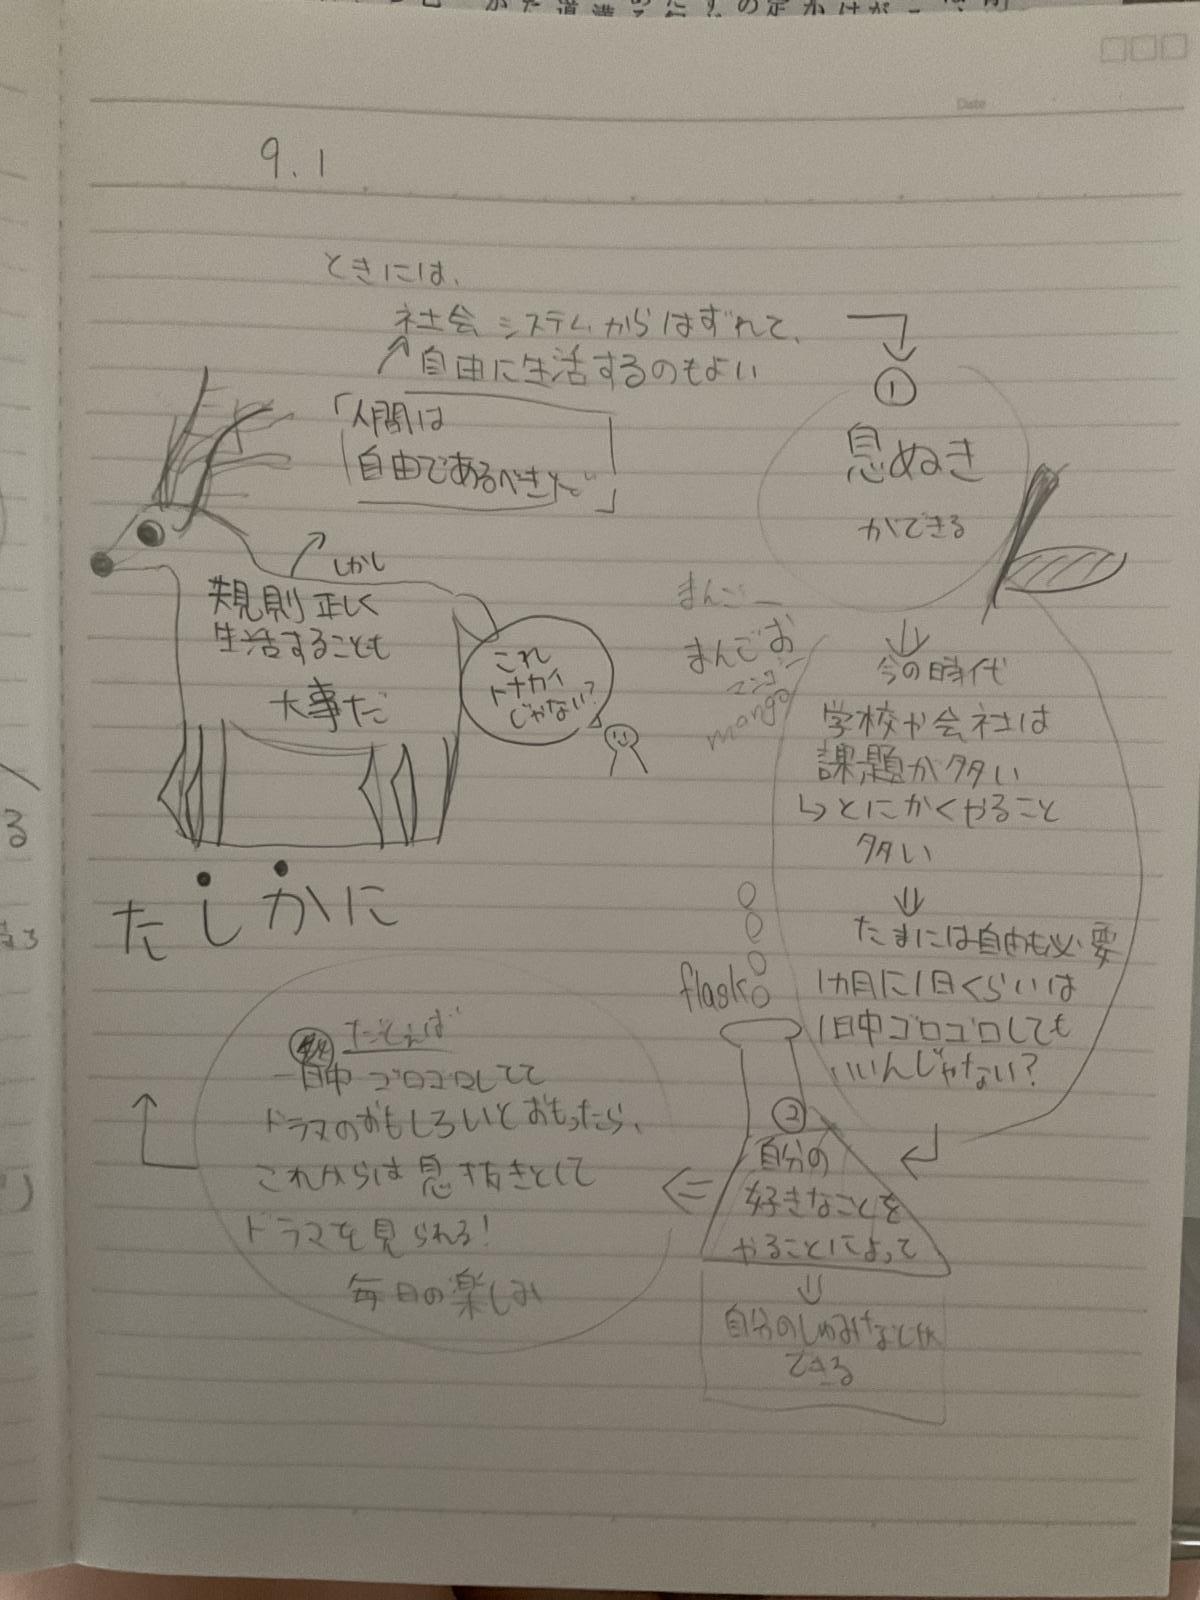 Date
9.1
ときには、
社会システムからはずれて、
自由に生活するのもよい
「人間は
自由であるべきだ」
①
息ぬき
ができる
しかし
規則正しく
生活することも
大事だ
これ
トナカイ
じゃない?
まんごー
まんごお
マンゴー
mango
⇓
今の時代
学校や会社は
課題が多い
↳とにかくやること
多い
⇓
たまには自由も必要
1カ月に1日くらいは
1日中ゴロゴロしても
いいんじゃない?
たしかに
flask
②
自分の
好きなことを
やることによって
⇓
自分のしゅみなどが
できる
たとえば
一日中ゴロゴロしてて
ドラマのおもしろいとおもったら、
これからは息抜きとして
ドラマを見られる!
毎日の楽しみ
る